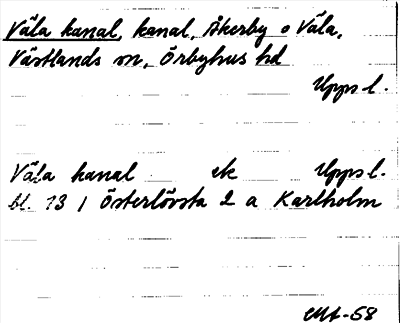 Väla kanal, kanal, Åkerby o Väla,
Västlands sn, Örbyhus hd
Upps l.
Väla kanal ek Upps l.
bl. 13 / Österlövsta 2 a Karlholm
-58